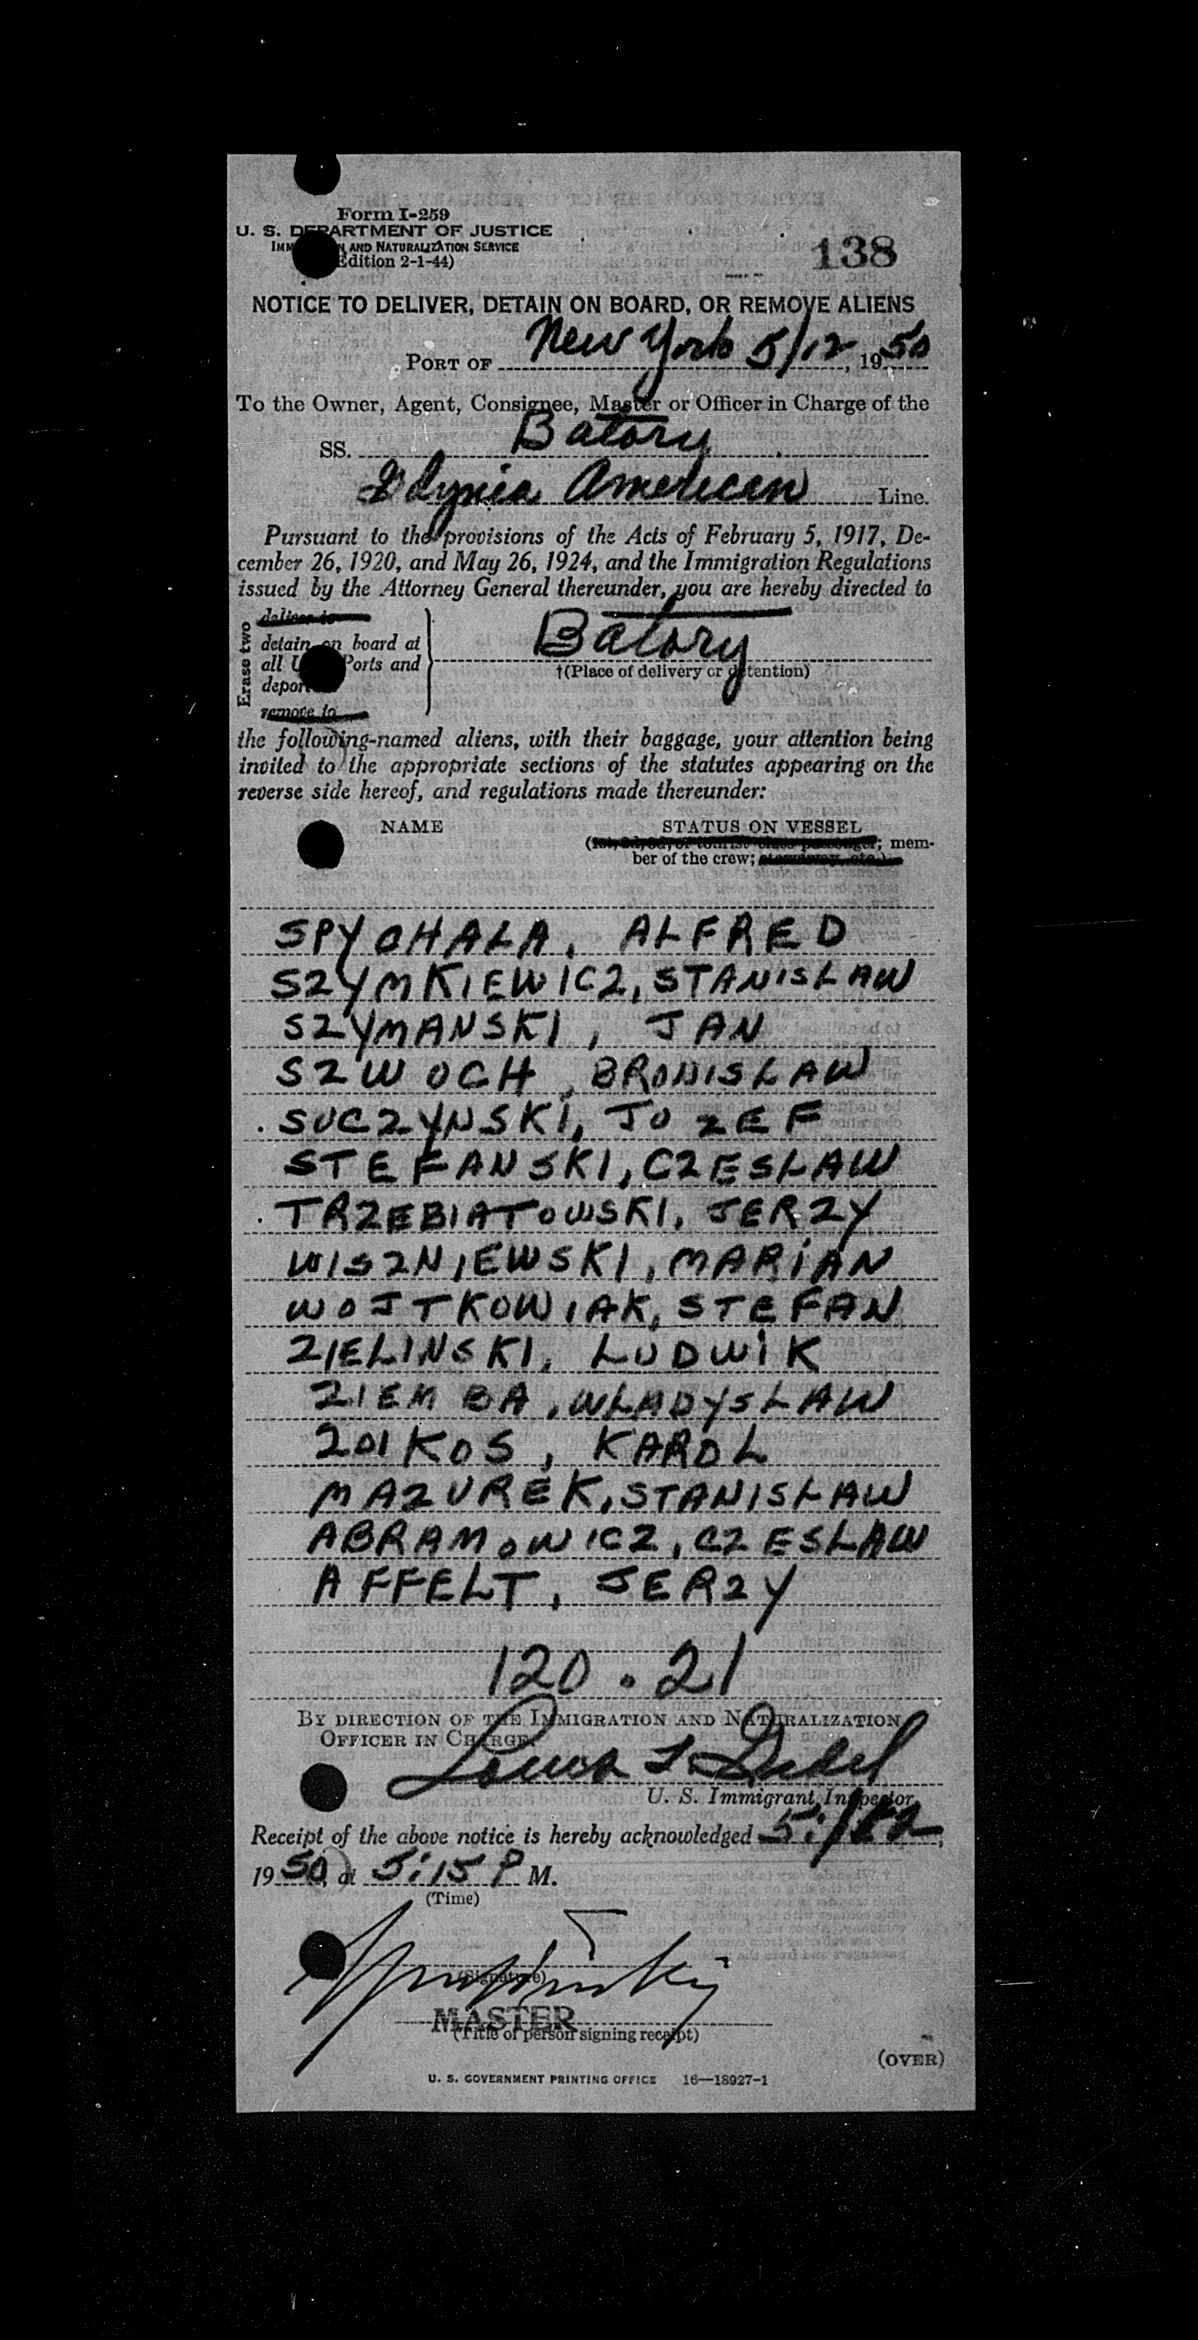 Form I-259
U. S. DEPARTMENT OF JUSTICE
IMMIGRATION AND NATURALIZATION SERVICE
(Edition 2-1-44)
138
NOTICE TO DELIVER, DETAIN ON BOARD, OR REMOVE ALIENS
PORT OF New York 5/12, 1950
To the Owner, Agent, Consignee, Master or Officer in Charge of the
SS. Batory
Gdynia American Line.
Pursuant to the provisions of the Acts of February 5, 1917, De-
cember 26, 1920, and May 26, 1924, and the Immigration Regulations
issued by the Attorney General thereunder, you are hereby directed to
Erase two
deliver to
detain on board at
all U. S. Ports and
deport
remove to
Batory
†(Place of delivery or detention)
the following-named aliens, with their baggage, your attention being
invited to the appropriate sections of the statutes appearing on the
reverse side hereof, and regulations made thereunder:
NAME STATUS ON VESSEL
(1st, 2d, 3d, or tourist class passenger; mem-
ber of the crew; stowaway, etc.)
SPYCHALA, ALFRED
SZYMKIEWICZ, STANISLAW
SZYMANSKI, JAN
SZWOCH, BRONISLAW
SUCZYNSKI, JOZEF
STEFANSKI, CZESLAW
TRZEBIATOWSKI, JERZY
WISZNIEWSKI, MARIAN
WOJTKOWIAK, STEFAN
ZIELINSKI, LUDWIK
ZIEMBA, WLADYSLAW
ZOIKOS, KAROL
MAZUREK, STANISLAW
ABRAMOWICZ, CZESLAW
AFFELT, JERZY
120.21
BY DIRECTION OF THE IMMIGRATION AND NATURALIZATION
OFFICER IN CHARGE
U. S. Immigrant Inspector.
Receipt of the above notice is hereby acknowledged 5/12,
1950, at 5:15 P M.
(Time)
(Signature)
MASTER
(Title of person signing receipt)
(OVER)
U. S. GOVERNMENT PRINTING OFFICE 16—18927-1